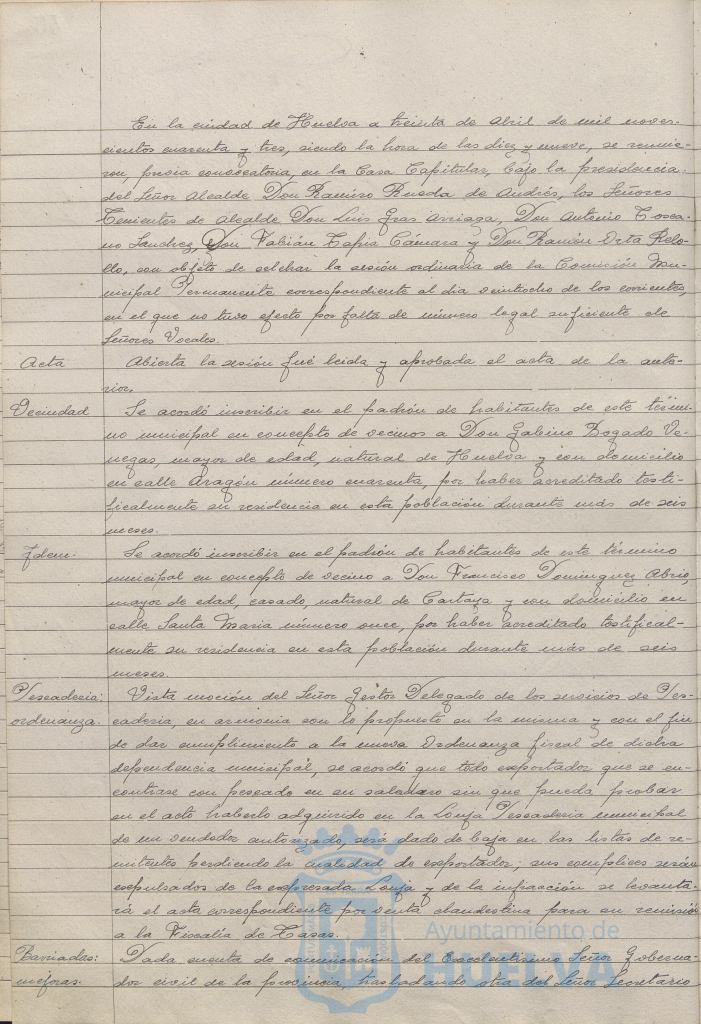 En la ciudad de Huelva a treinta de Abril de mil nove-
cientos cuarenta y tres, siendo la hora de las diez y nueve, se reunie-
ron, previa convocatoria, en la Casa Capitular, bajo la presidencia
del Señor Alcalde Don Ramiro Rueda de Andrés, los Señores
Tenientes de Alcalde Don Luis Gras Arriaga, Don Antonio Tosca-
no Sanchez, Don Fabián Tapia Cámara y Don Ramón Orta Rebo-
llo, con objeto de celebrar la sesión ordinaria de la Comisión Mu-
nicipal Permanente correspondiente al dia veintiocho de los corrientes,
en el que no tuvo efecto por falta de número legal suficiente de
Señores Vocales.
Acta Abierta la sesión fué leida y aprobada el acta de la ante-
rior.
Vecindad Se acordó inscribir en el padrón de habitantes de este térmi-
no municipal en concepto de vecinos a Don Gabino Bogado Ve-
negas, mayor de edad, natural de Huelva y con domicilio
en calle Aragón número cuarenta, por haber acreditado testi-
ficalmente su residencia en esta población durante más de seis
meses.
Idem. Se acordó inscribir en el padrón de habitantes de este término
municipal en concepto de vecino a Don Francisco Dominguez Abrio,
mayor de edad, casado, natural de Cartaya y con domicilio en
calle Santa Maria número once, por haber acreditado testifical-
mente su residencia en esta población durante más de seis
meses.
Pescaderia: Vista moción del Señor Gestor Delegado de los servicios de Pes-
ordenanza. caderia, en armonia con lo propuesto en la misma y con el fin
de dar cumplimiento a la nueva Ordenanza fiscal de dicha
dependencia municipal, se acordó que todo exportador que se en-
contrase con pescado en su saladero sin que pueda probar
en el acto haberlo adquirido en la Lonja Pescaderia municipal
de un vendedor autorizado, será dado de baja en las listas de re-
mitentes perdiendo la cualidad de exportador; sus complices serán
expulsados de la expresada Lonja y de la infracción se levanta-
rá el acta correspondiente por venta clandestina para su remisión
a la Fiscalía de Tasas.
Barriadas: Dada cuenta de comunicación del Excelentisimo Señor Goberna-
mejoras. dor civil de la provincia, trasladando otra del Señor Secretario
Ayuntamiento de
HUELVA